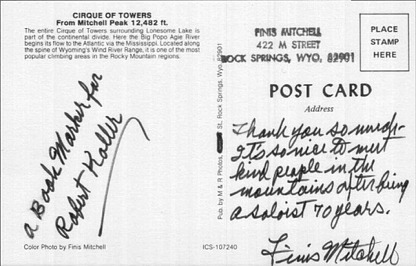 CIRQUE OF TOWERS
From Mitchell Peak 12,482 ft.
The entire Cirque of Towers surrounding Lonesome Lake is
part of the continental divide. Here the Big Popo Agie River
begins its flow to the Atlantic via the Mississippi. Located along
the spine of Wyoming's Wind River Range, it is one of the most
popular climbing areas in the Rocky Mountain regions.
a Book Marker for
Robert Koller
Color Photo by Finis Mitchell
Pub. by M & R Photos, St., Rock Springs, Wyo. 82901
ICS-107240
FINIS MITCHELL
422 M STREET
ROCK SPRINGS, WYO, 82901
PLACE
STAMP
HERE
POST CARD
Address
Thank you so much.
It's so nice to meet
kind people in the
mountains after being
a soloist 70 years.
Finis Mitchell